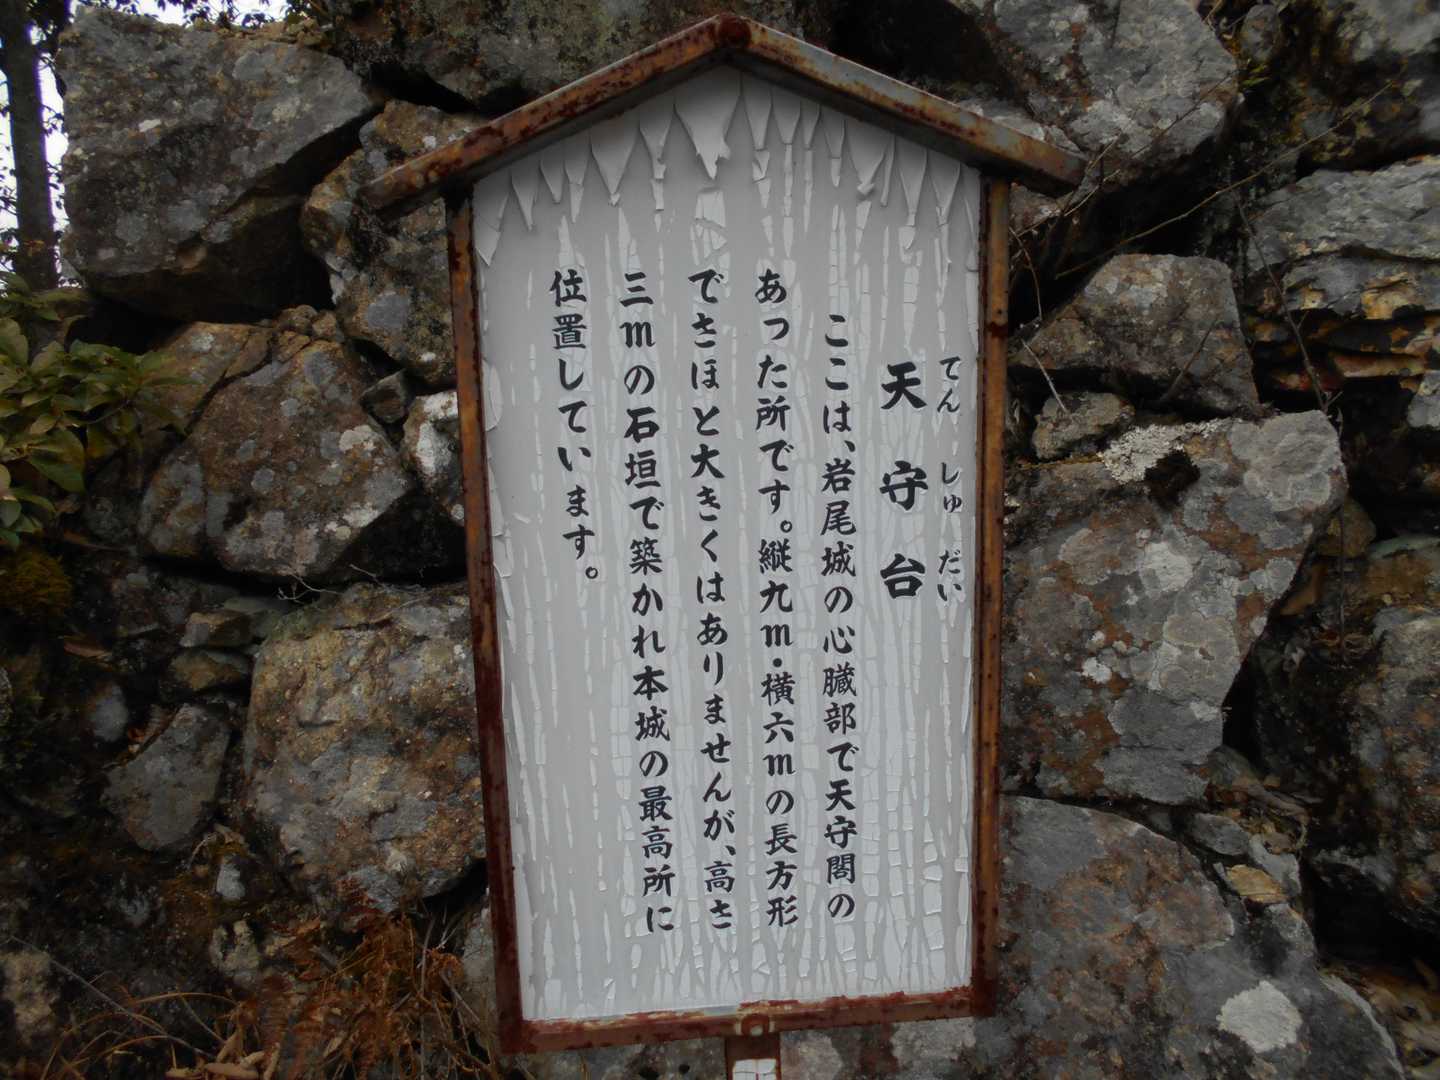 てん しゅ だい
天守台
ここは、岩尾城の心臓部で天守閣の
あった所です。縦九m・横六mの長方形
でさほど大きくはありませんが、高さ
三mの石垣で築かれ本城の最高所に
位置しています。